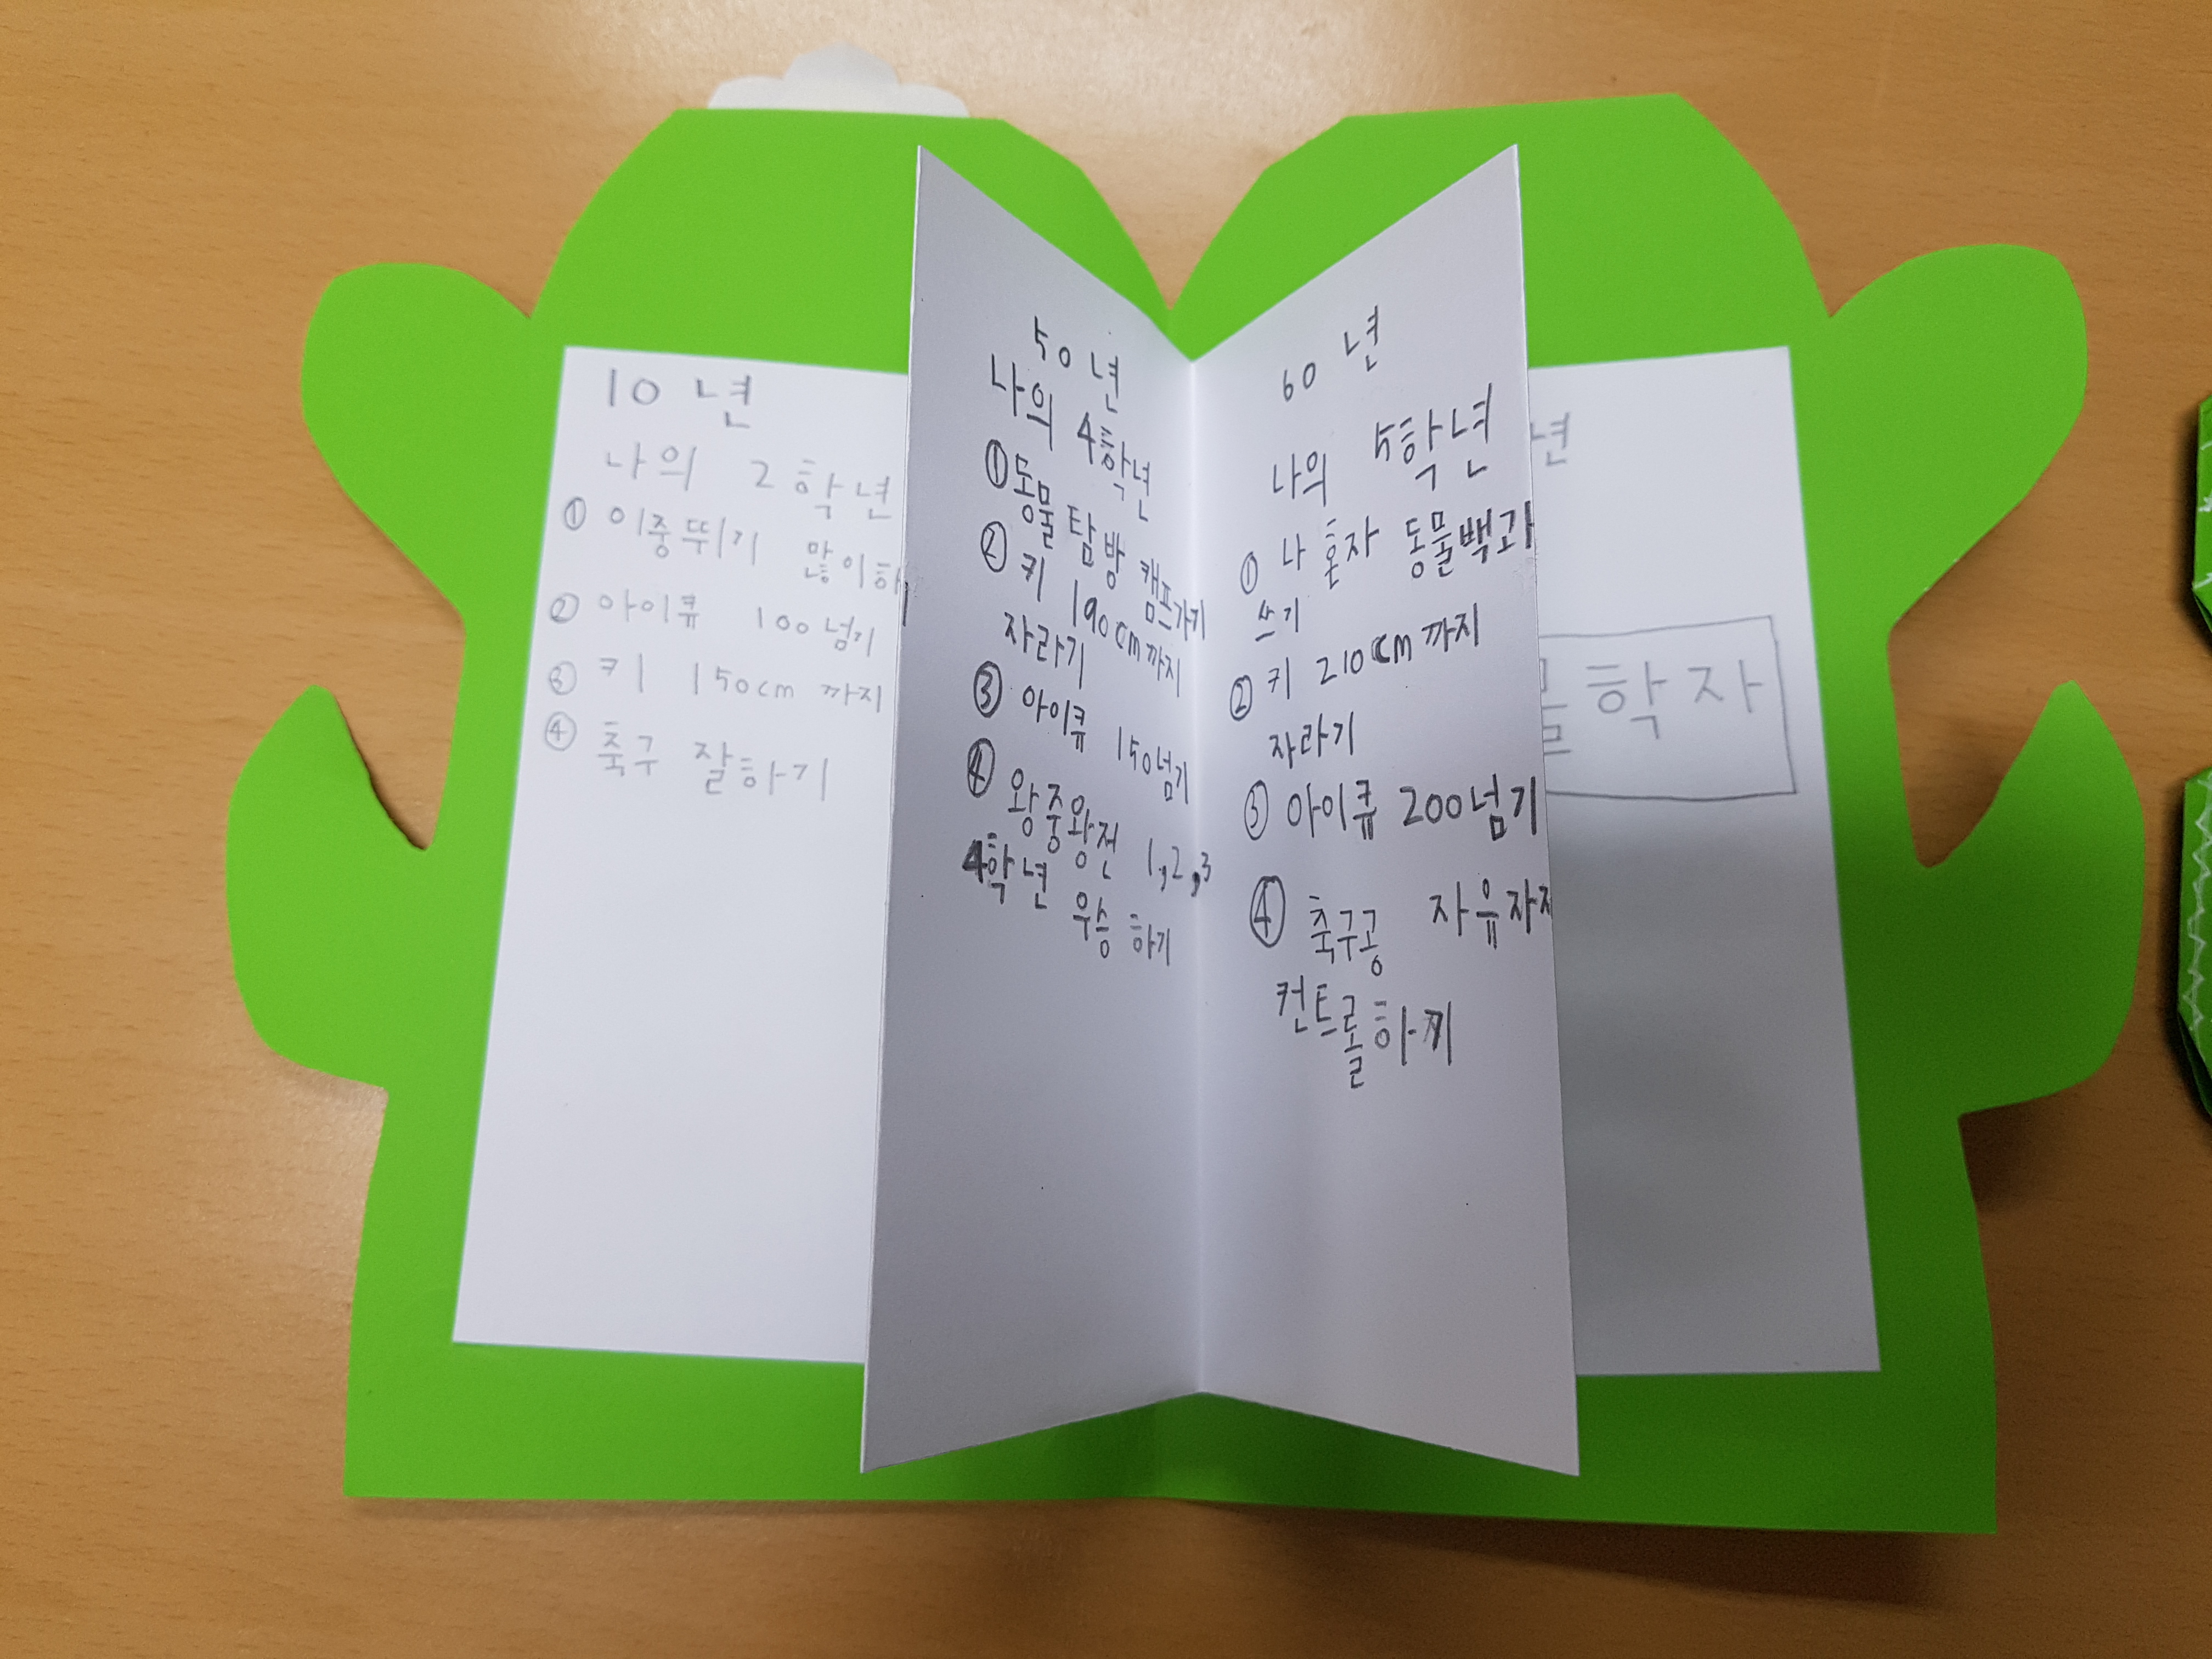 10 년
나의 2학년
① 이중뛰기 많이하
② 아이큐 100넘기
③ 키 150cm 까지
④ 축구 잘하기
50년
나의 4학년
①동물탐방 캠프가기
② 키 190cm까지
자라기
③ 아이큐 150넘기
④ 왕중왕전 1,2,3
4학년 우승 하기
60 년
나의 5학년
① 나 혼자 동물백과
쓰기
② 키 210cm 까지
자라기
③ 아이큐 200넘기
④ 축구공 자유자재
컨트롤하기
년
학자